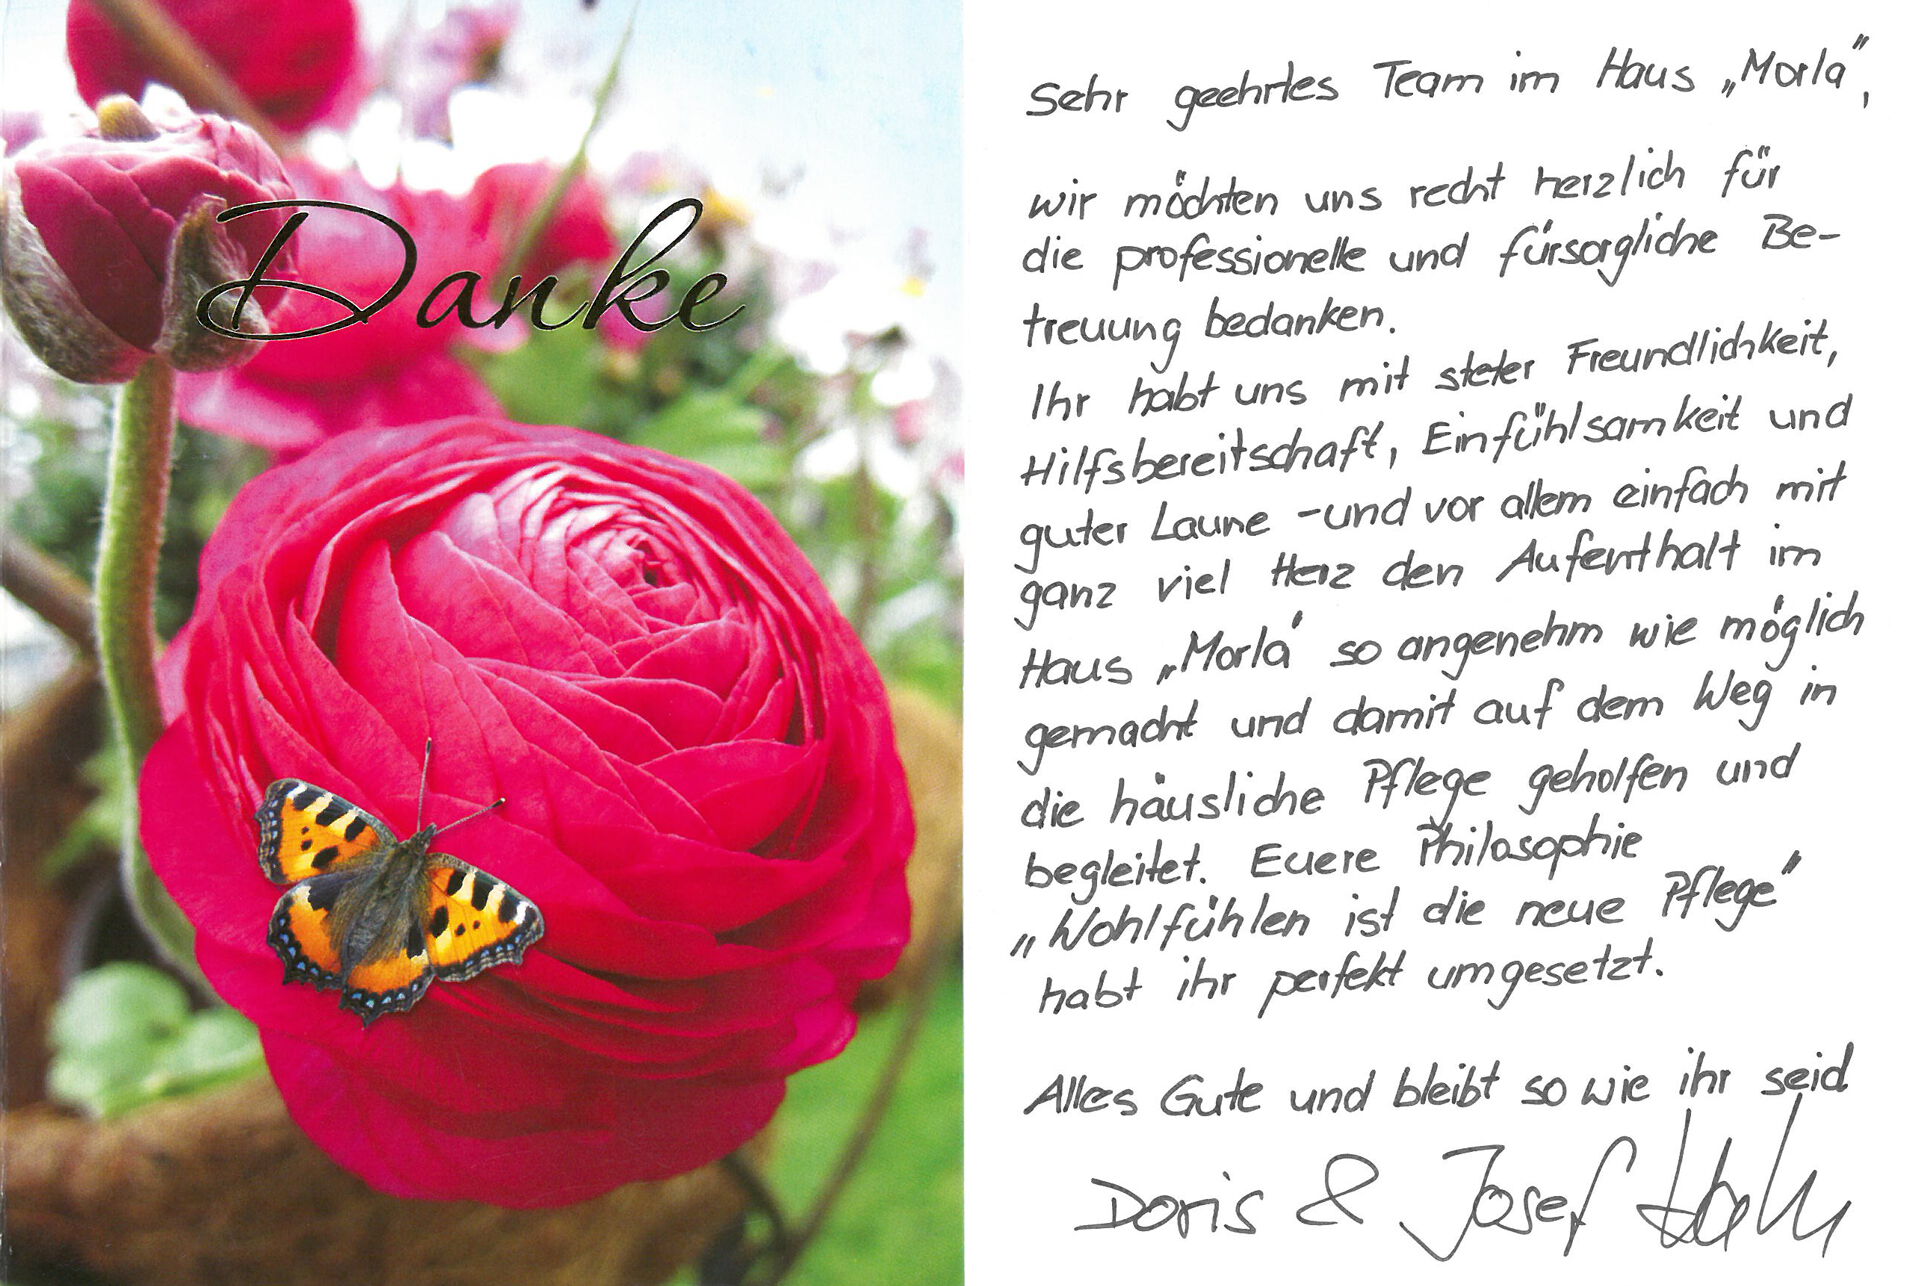 Danke
Sehr geehrtes Team im Haus „Morla",
wir möchten uns recht herzlich für
die professionelle und fürsorgliche Be-
treuung bedanken.
Ihr habt uns mit steter Freundlichkeit,
Hilfsbereitschaft, Einfühlsamkeit und
guter Laune - und vor allem einfach mit
ganz viel Herz den Aufenthalt im
Haus „Morla" so angenehm wie möglich
gemacht und damit auf dem Weg in
die häusliche Pflege geholfen und
begleitet. Euere Philosophie
„Wohlfühlen ist die neue Pflege"
habt ihr perfekt umgesetzt.
Alles Gute und bleibt so wie ihr seid
Doris & Josef